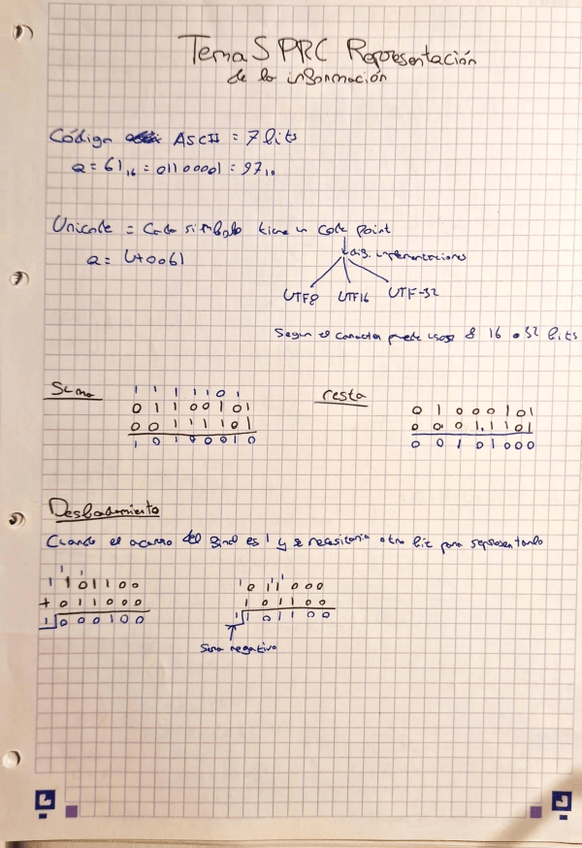 Tema 5 PRC Representación
de la información
Código ASCII = 7 bits
a = 61₁₆ = 01100001 = 97₁₀
Unicode = Cada simbolo tiene un code point
a = U+0061
dig. implementaciones
UTF8 UTF16 UTF-32
Segun el caracter puede usar 8 16 o 32 bits
Suma
1 1 1 1 1 0 1
0 1 1 0 0 1 0 1
0 0 1 1 1 1 0 1
1 0 1 0 0 0 1 0
resta
0 1 0 0 0 1 0 1
0 0 0 1 1 1 0 1
0 0 1 0 1 0 0 0
Desbordamiento
Cuando el acarreo del final es 1 y se necesitaria otro bit para representarlo
1 1
1 1 0 1 1 0 0
+ 0 1 1 0 0 0
1 0 0 0 1 0 0
1 1 1
0 1 1 0 0 0
1 0 1 1 0 0
1 1 0 1 1 0 0
Suma negativo